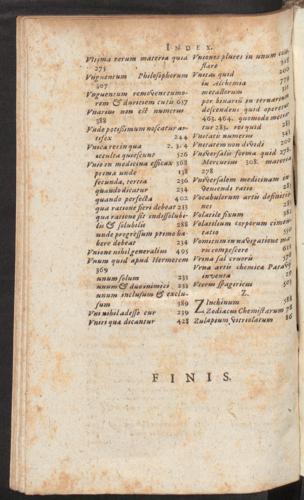 INDEX.
Vltima rerum materia quid
275
Vnguentum Philosophorum
507
Vnguentum removens tumorem
& duritiem cutis 657
Vnarius non est numerus
388
Vnde potissimum noscatur artifex
244
Vnica res in qua 2. 3. 4
occulta quiescunt 526
Vnio in medicina efficax 308
prima unde 138
secunda, tertia 236
quando dicatur 234
quando perfecta 402
qua ratione fieri debeat 233
qua ratione sit indissolubilis
& solubilis 288
unde progressum primo habere
debeat 234
Vnione nihil generalius 495
Vnum quid apud Hermetem
369
unum solum 233
unum & duo inimici 232
unum inclusum & exclusum
389
Vni nihil adesse cur 239
Vnites qua dicantur 428
Vniones plures in unum conflare
318
Vnitas quid 200
in Alchemia 279
metallorum 316
per binarium in ternarium
descendens quid operetur
463. 464. quomodo mercetur
283. res quid 231
Vnitatis numerus 543
Vnitatem non dividi 200
Vniversalis forma quid 278.
Mercurius 308. materia
278
Vniversalem medicinam inveniendi
ratio 282
Vocabulorum artis definitiones
1
Volatile fixum 382
Volatilium corporum cimentatio
550
Vomitum in navigatione maris
compescere 618
Vrina sal cruoris 578
Vrna artis chemica Patavij
inventa 29
Vterus spagiricus 503
Z.
Zinchinum 588
Zodiacus Chemistarum 78
Zulapium vitriolatum 86
FINIS.